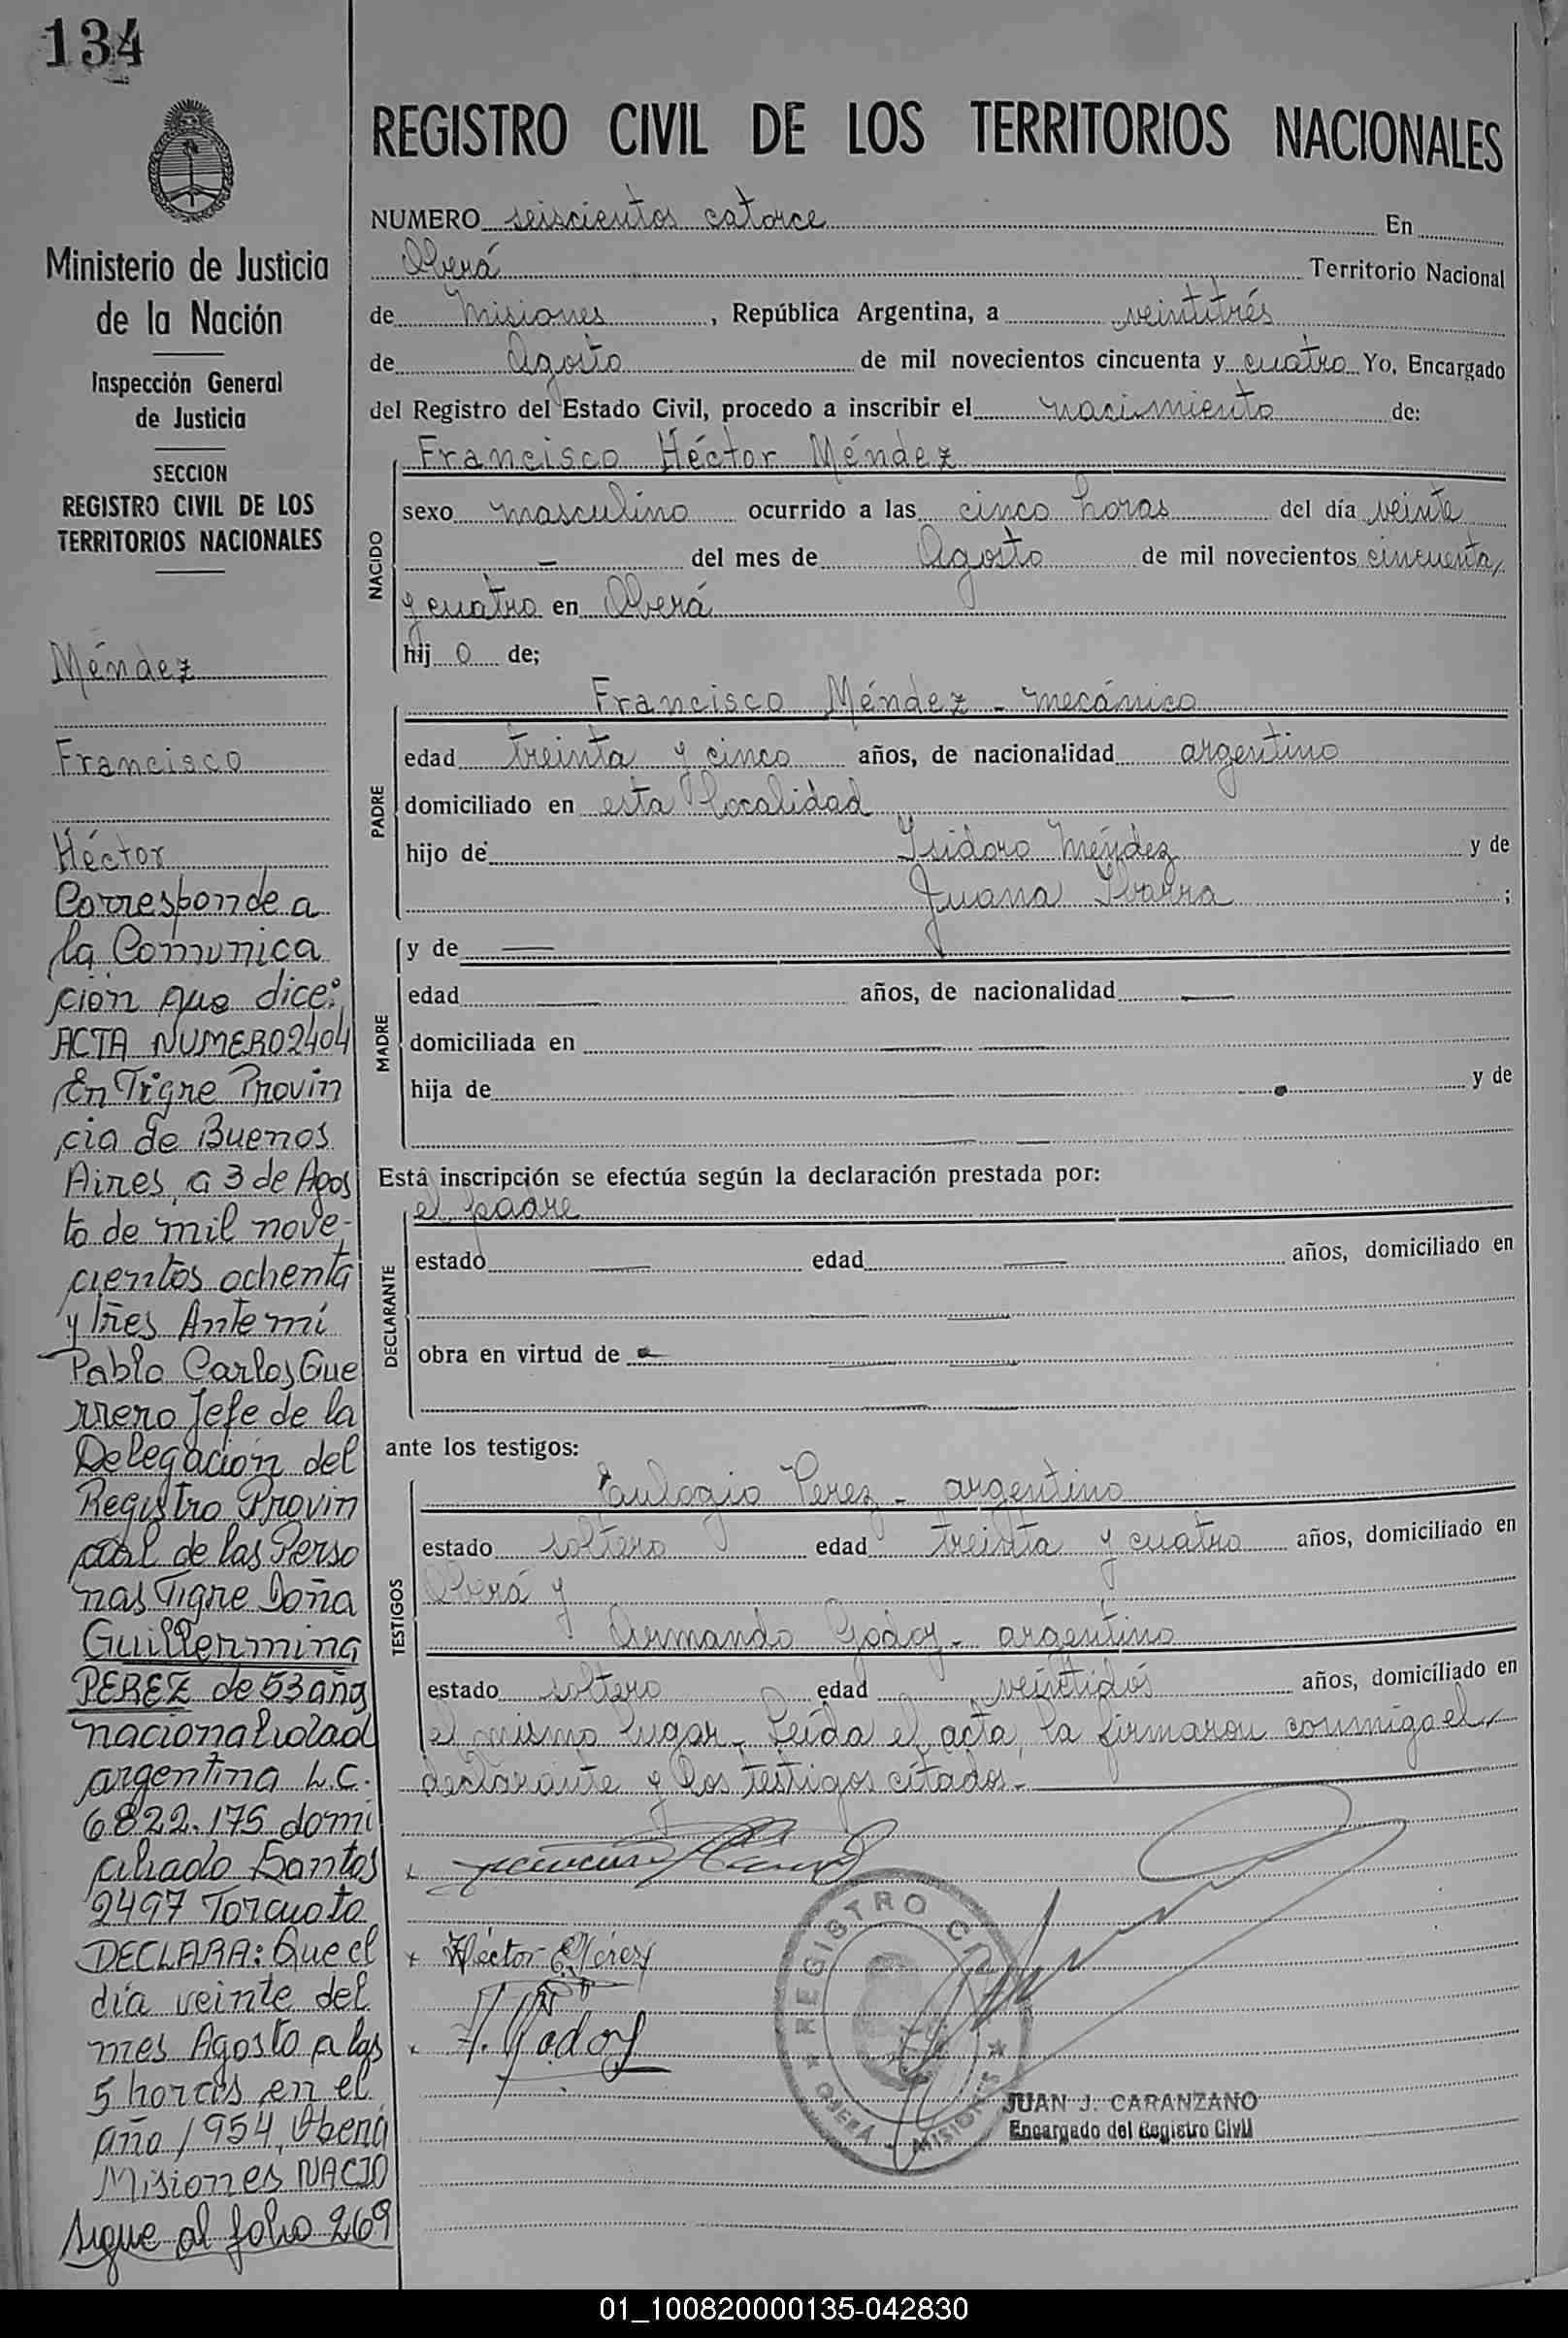 134
Ministerio de Justicia
de la Nación
Inspección General
de Justicia
SECCION
REGISTRO CIVIL DE LOS
TERRITORIOS NACIONALES
Méndez
Francisco
Héctor
Corresponde a
la Comunica
ción que dice:
ACTA NUMERO 2404
En Tigre Provin
cia de Buenos
Aires, a 3 de Agos
to de mil nove-
cientos ochenta
y tres Ante mí
Pablo Carlos Gue
rrero Jefe de la
Delegación del
Registro Provin
cial de las Perso
nas Tigre Doña
Guillermina
PEREZ de 53 años
nacionalidad
argentina L.C.
6822.175 domi
ciliado Santos
2497 Torcuato
DECLARA: Que el
día veinte del
mes Agosto a las
5 horas en el
año 1954, Oberá
Misiones NACIO
Sigue al folio 269
REGISTRO CIVIL DE LOS TERRITORIOS NACIONALES
NUMERO seiscientos catorce En
Oberá Territorio Nacional
de Misiones, República Argentina, a veintitrés
de Agosto de mil novecientos cincuenta y cuatro Yo, Encargado
del Registro del Estado Civil, procedo a inscribir el nacimiento de:
NACIDO
Francisco Héctor Méndez
sexo masculino ocurrido a las cinco horas del día veinte
— del mes de Agosto de mil novecientos cincuenta
y cuatro en Oberá
hij o de;
PADRE
Francisco Méndez - mecánico
edad treinta y cinco años, de nacionalidad argentino
domiciliado en esta localidad
hijo de Isidoro Méndez y de
Juana Ibarra ;
MADRE
y de —
edad — años, de nacionalidad —
domiciliada en — —
hija de — y de
— —
Esta inscripción se efectúa según la declaración prestada por:
DECLARANTE
el padre
estado — edad — años, domiciliado en
— —
obra en virtud de — — —
— —
ante los testigos:
TESTIGOS
Eulogio Perez - argentino
estado soltero edad treinta y cuatro años, domiciliado en
Oberá y
Armando Godoy - argentino
estado soltero edad veintidós años, domiciliado en
el mismo lugar. Leída el acta, la firmaron conmigo el
declarante y los testigos citados.-
Héctor E. Pérez
A. Godoy
REGISTRO CIVIL
OBERÁ - MISIONES
JUAN J. CARANZANO
Encargado del Registro Civil
01_100820000135-042830